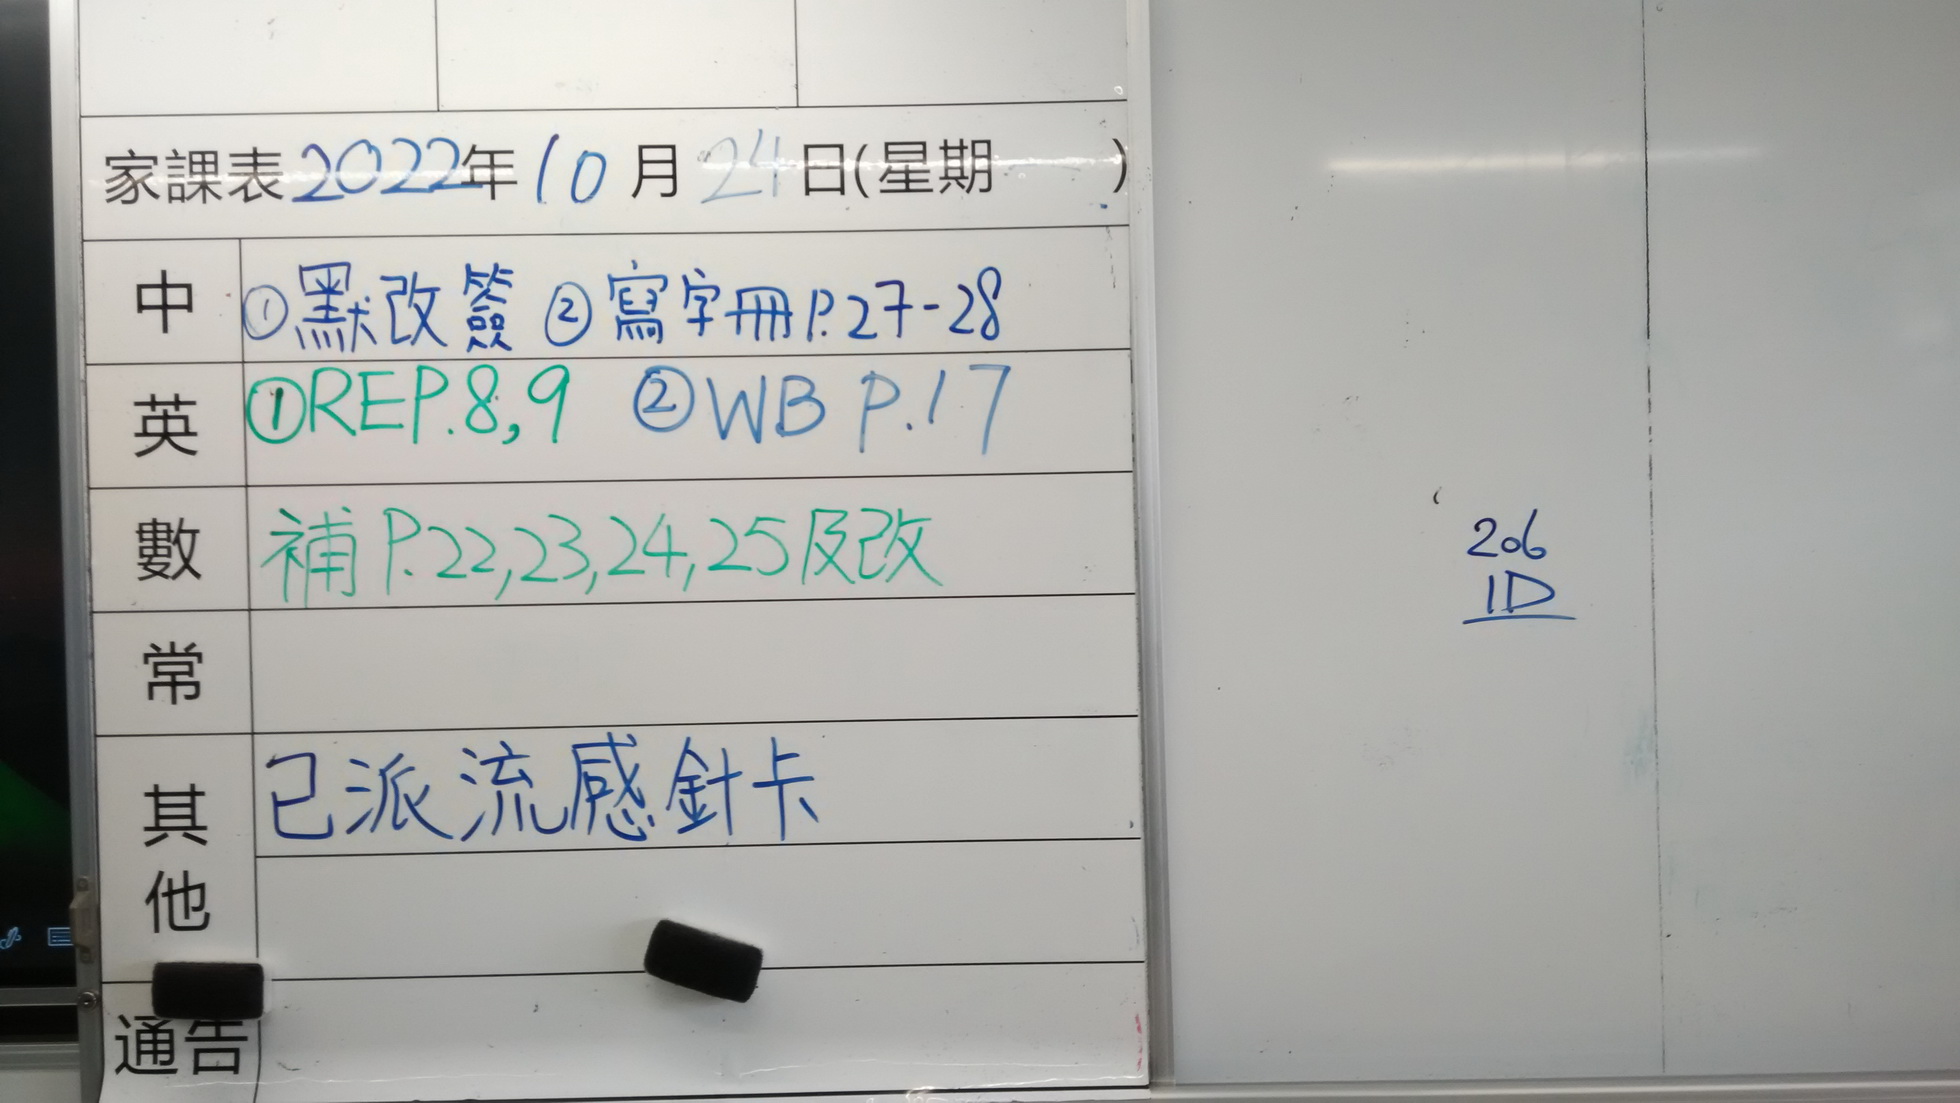 家課表2022年10月24日(星期 )
中 ①默改簽 ②寫字冊P.27-28
英 ①REP.8,9 ②WB P.17
數 補P.22,23,24,25及改
常
其他 已派流感針卡
通告
206
1D